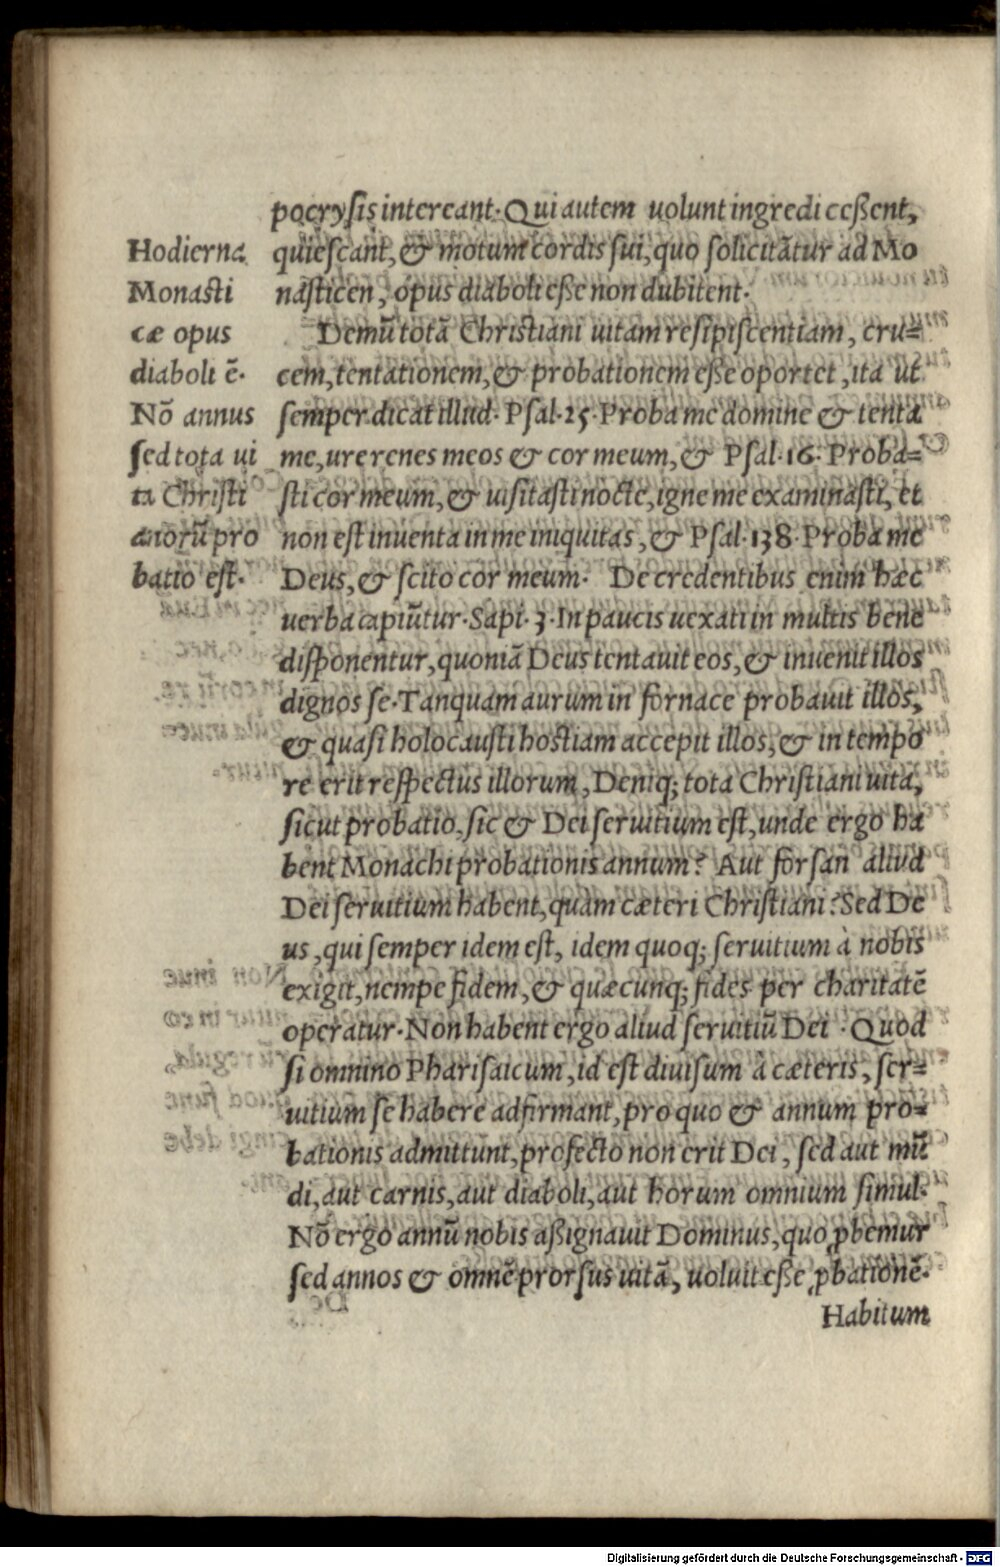 Hodierna
Monasti
cæ opus
diaboli ē.
Nō annus
sed tota ui
ta Christi
anorū pro
batio est.
pocrysis intereant. Qui autem uolunt ingredi ceßent,
quiescant, & motum cordis sui, quo solicitātur ad Mo
nasticen, opus diaboli eße non dubitent.
Demū totā Christiani uitam resipiscentiam, cru=
cem, tentationem, & probationem eße oportet, ita ut
semper dicat illud. Psal. 25. Proba me domine & tenta
me, ure renes meos & cor meum, & Psal. 16. Proba=
sti cor meum, & uisitasti nocte, igne me examinasti, et
non est inuenta in me iniquitas, & Psal. 138. Proba me
Deus, & scito cor meum. De credentibus enim hæc
uerba capiūtur. Sapi. 3. In paucis uexati in multis bene
disponentur, quoniā Deus tentauit eos, & inuenit illos
dignos se. Tanquam aurum in fornace probauit illos,
& quasi holocausti hostiam accepit illos, & in tempo
re erit respectus illorum, Deniq; tota Christiani uita,
sicut probatio, sic & Dei seruitium est, unde ergo ha
bent Monachi probationis annum? Aut forsan aliud
Dei seruitium habent, quam cæteri Christiani? Sed De
us, qui semper idem est, idem quoq; seruitium à nobis
exigit, nempe fidem, & quæcunq; fides per charitatē
operatur. Non habent ergo aliud seruitiū Dei. Quod
si omnino Pharisaicum, id est diuisum à cæteris, ser=
uitium se habere adfirmant, pro quo & annum pro=
bationis admittunt, profecto non erit Dei, sed aut mū
di, aut carnis, aut diaboli, aut horum omnium simul.
Nō ergo annū nobis aßignauit Dominus, quo ꝓbemur
sed annos & omnē prorsus uitā, uoluit eße ꝓbationē.
Habitum
Digitalisierung gefördert durch die Deutsche Forschungsgemeinschaft - DFG